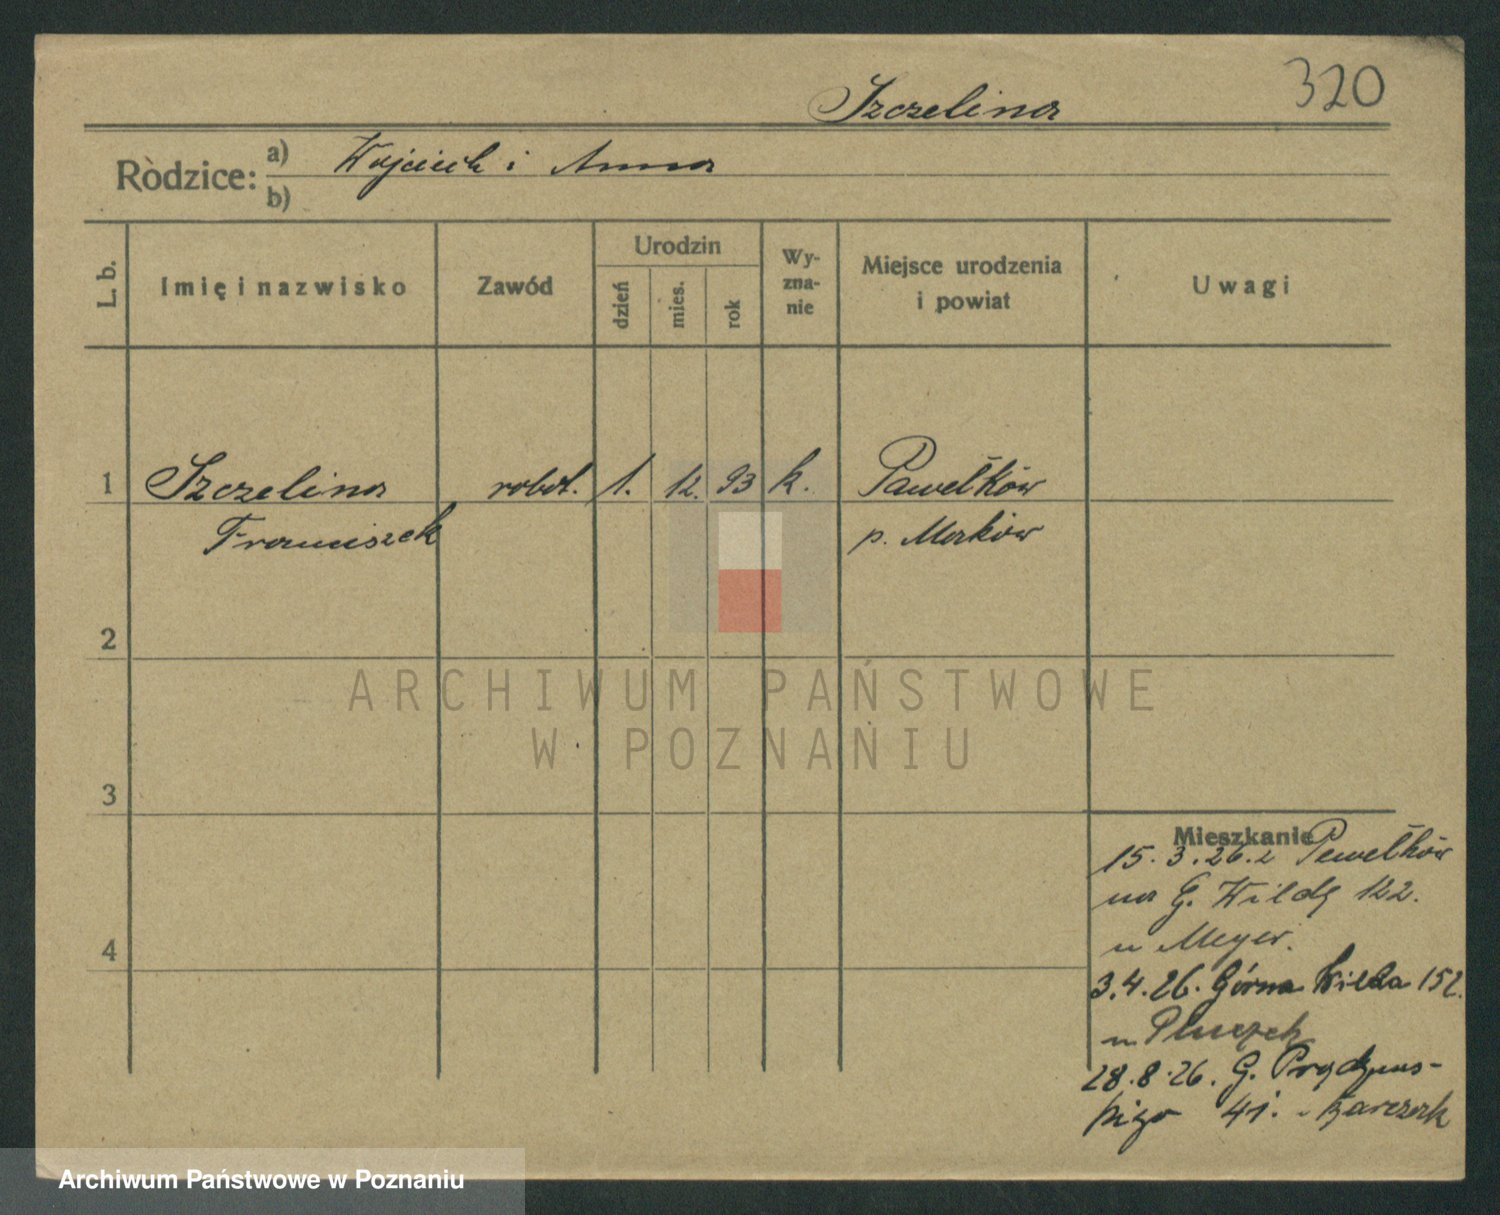 320
Szczelina
Rodzice: a) Wojciech i Anna
b)
L. b.
Imię i nazwisko
Zawód
Urodzin
dzień
mies.
rok
Wy-
zna-
nie
Miejsce urodzenia
i powiat
Uwagi
1 Szczelina robot. 1. 12. 93 k. Pawełków
Franciszek p. Maków
2
3
4
Mieszkanie
15.3.26. z Pawełków
na G. Wildę 122.
u Meyer.
3.4.26. Górna Wilda 152.
u
28.8.26. G. Prądzyns-
kigo 41.
ARCHIWUM PAŃSTWOWE
W POZNANIU
Archiwum Państwowe w Poznaniu